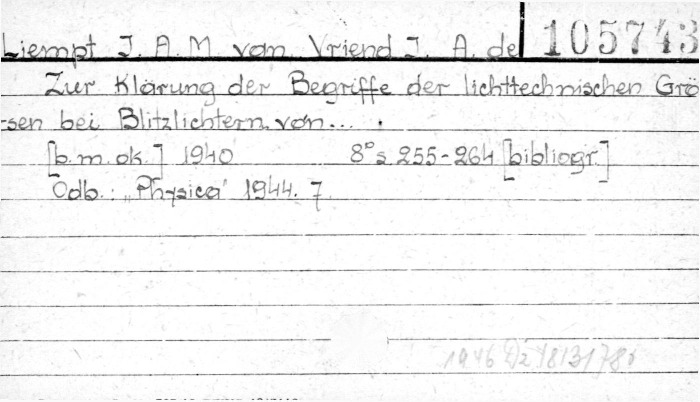 Liempt J. A. M. van, Vriend J. A. de 105743
Zur Klärung der Begriffe der lichttechnischen Grö
-sen bei Blitzlichtern, von... .
[b.m.ok.] 1940 8° s. 255-264 [bibliogr.]
Odb.: „Physica" 1944. 7
1946 Dz